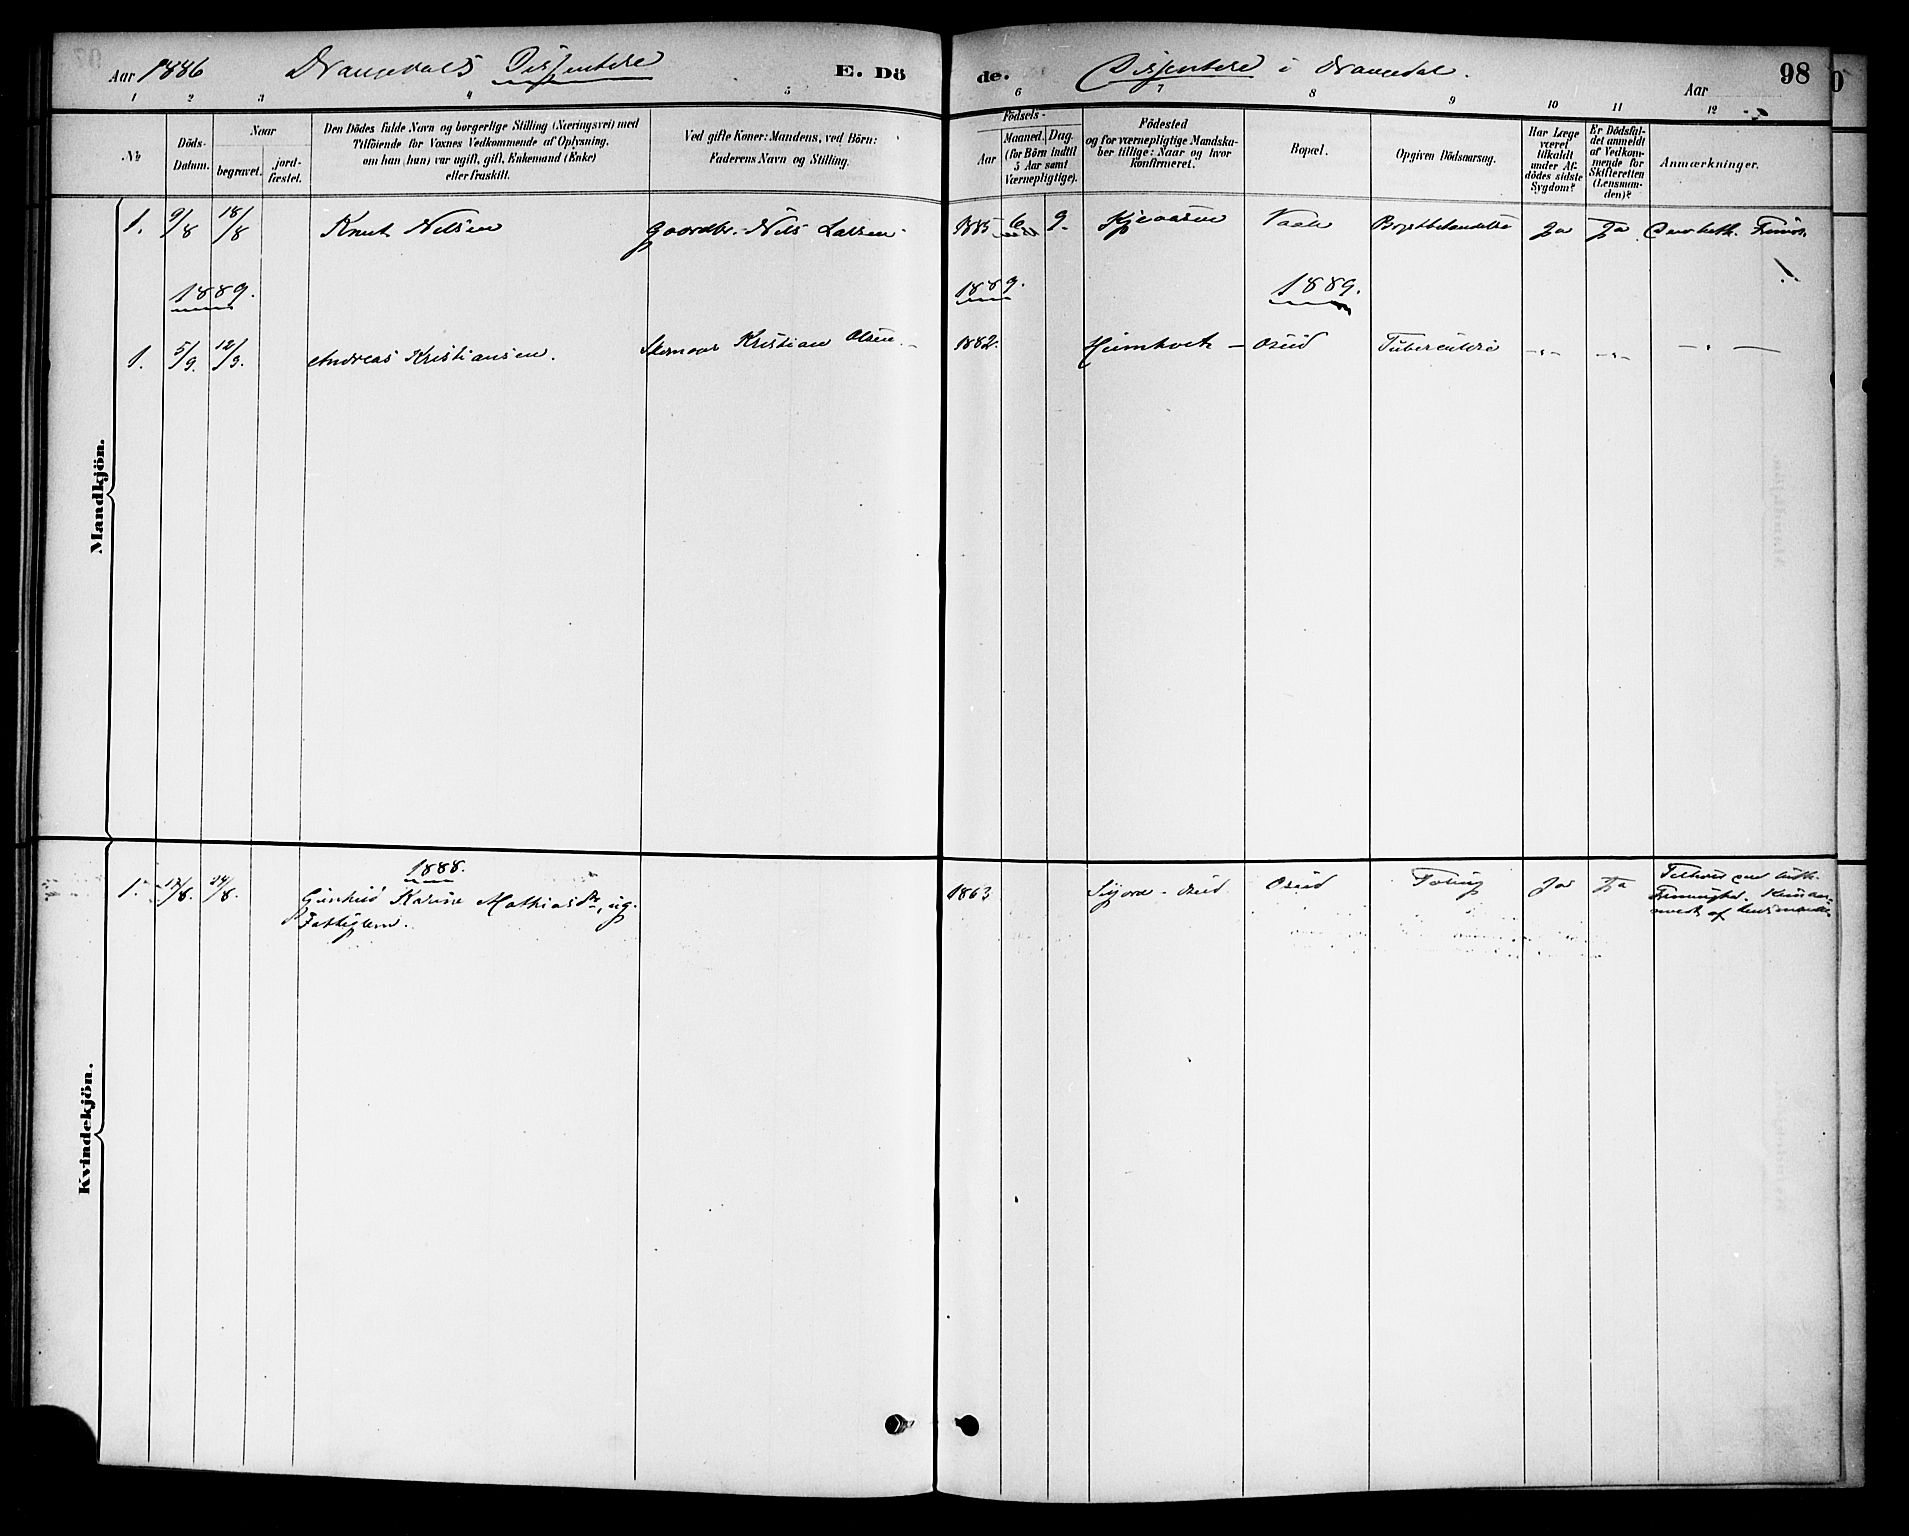 Aar 1886 Drangedals Dissentere E. Dö de. Dissentere i Drangedal. Aar 98
1 2 3 4 5 6 7 8 9 10 11 12
№
Döds-
Datum.
Naar
begravet.
jord-
fæstet.
Den Dödes fulde Navn og borgerlige Stilling (Næringsvei) med
Tilföiende for Voxnes Vedkommende af Oplysning,
om han (hun) var ugift, gift, Enkemand (Enke)
eller fraskilt.
Ved gifte Koner: Mandens, ved Börn:
Faderens Navn og Stilling.
Födsels-
Aar
Maaned. Dag.
(for Börn indtil
5 Aar samt
Værnepligtige).
Födested
og for værnepligtige Mandska-
ber tillige: Naar og hvor
konfirmeret.
Bopæl.
Opgiven Dödsaarsag.
Har Læge
været
tilkaldt
under Af-
dödes sidste
Sygdom?
Er Dödsfal-
det anmeldt
af Vedkom-
mende for
Skifteretten
(Lensman-
den)?
Anmærkninger.
Mandkjön.
1. 9/8 18/8 Knut Nilsen Gaardbr. Nils Larsen 1885 6 9. Kjeaasen Vaale Brystbetændelse Ja Ja
1889. 1889. 1889.
1. 5/9. 12/9. Andreas Kristiansen. Kristian Olsen. 1882. Heimholt - Oseid Tuberculose -"- -"- - " -
Kvindekjön.
1888.
1. 17/8. 24/8. Gunhild Karine Mathiasdr, ug. 1863 - Oseid Oseid Ja Ja
Fattiglem.
af Lensmanden